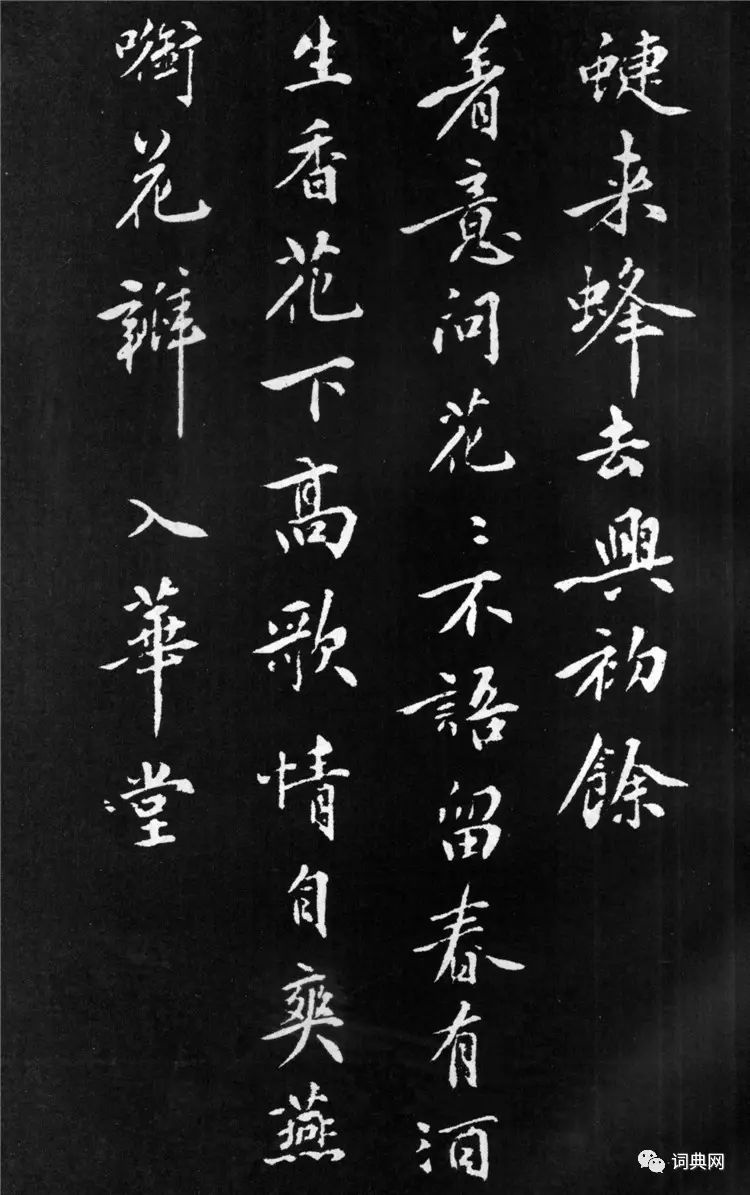 蜨来蜂去興初餘
着意问花〻不語留春有酒
生香花下高歌情自爽燕
啣花瓣入華堂
词典网